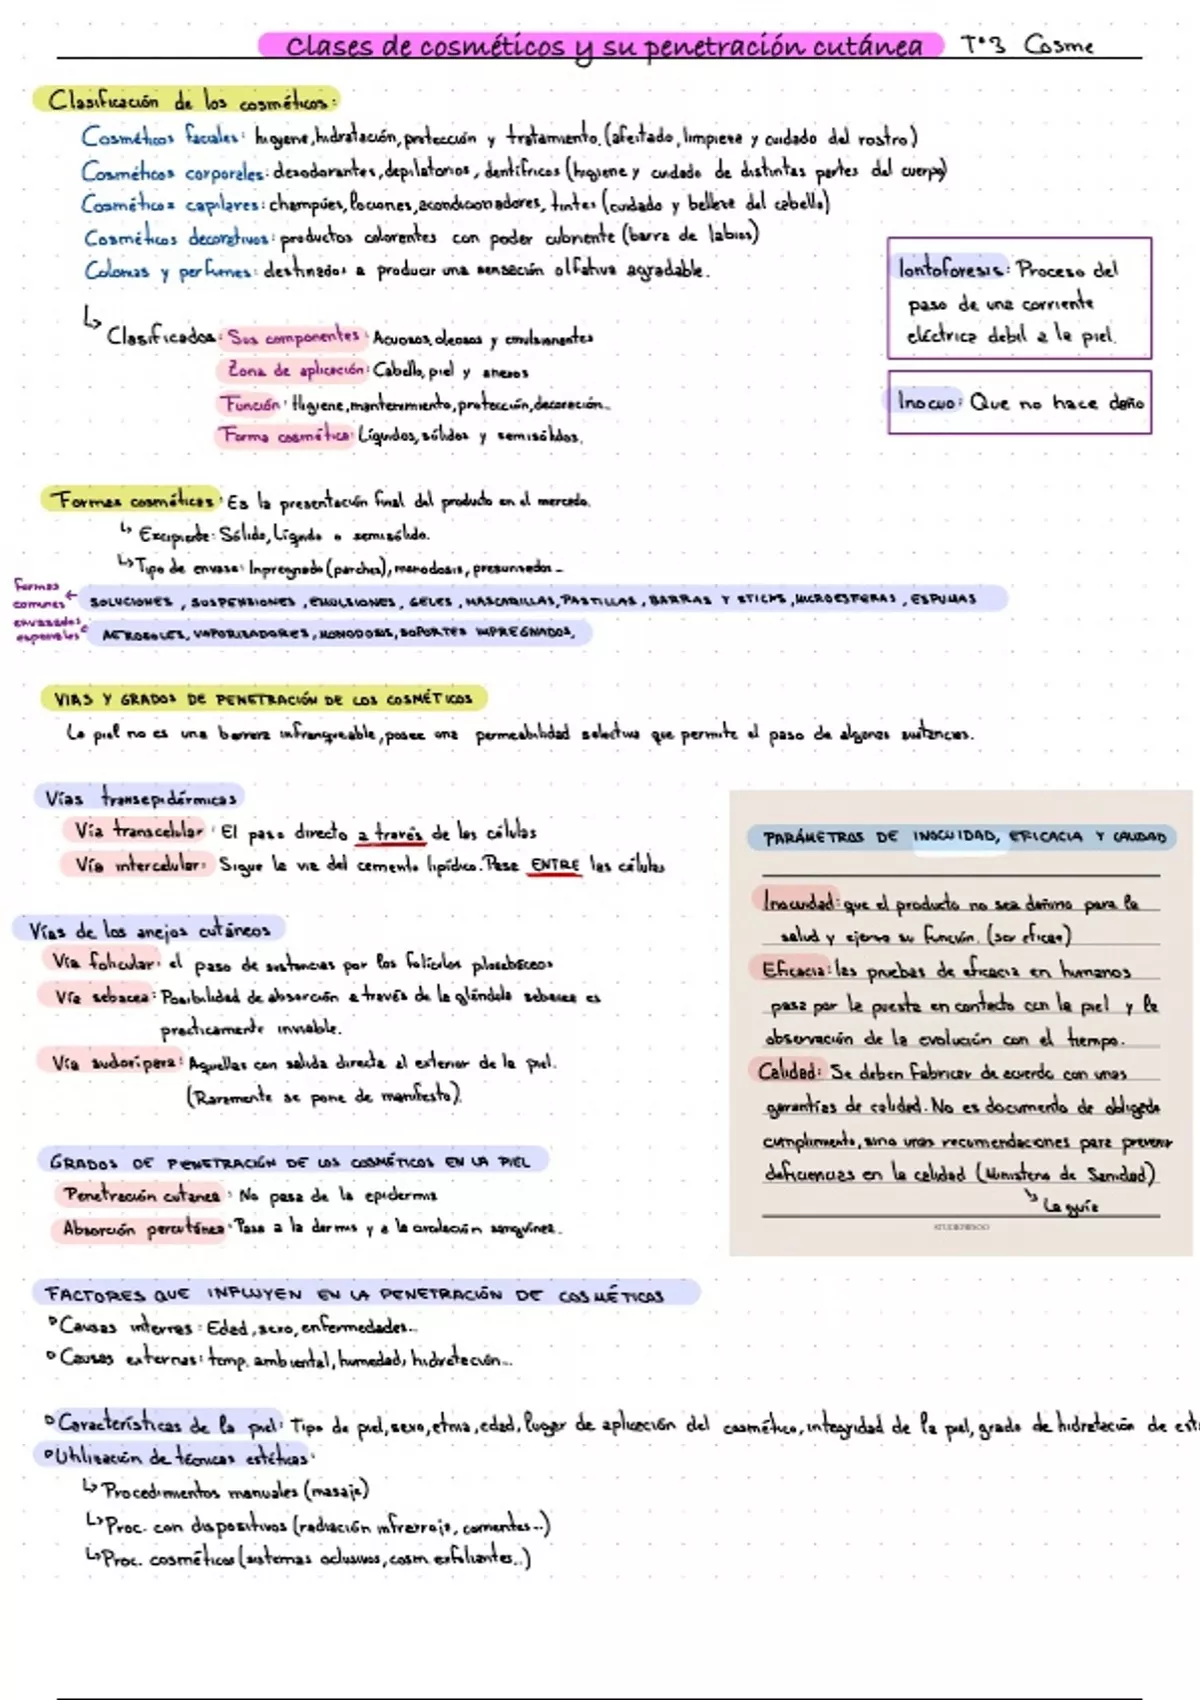 Clases de cosméticos y su penetración cutánea Tª3 Cosme
Clasificación de los cosméticos:
Cosméticos faciales: higiene, hidratación, protección y tratamiento. (afeitado, limpieza y cuidado del rostro)
Cosméticos corporales: desodorantes, depilatorios, dentífricos (higiene y cuidado de distintas partes del cuerpo)
Cosméticos capilares: champúes, lociones, acondicionadores, tintes (cuidado y belleza del cabello)
Cosméticos decorativos: productos colorantes con poder cubriente (barra de labios)
Colonias y perfumes: destinados a producir una sensación olfativa agradable.
Iontoforesis: Proceso del
paso de una corriente
eléctrica debil a la piel.
↳ Clasificados: Sus componentes: Acuosos, oleosos y emulsionantes
Zona de aplicación: Cabello, piel y anexos
Función: Higiene, mantenimiento, protección, decoración...
Forma cosmética: Líquidos, sólidos y semisólidos.
Inocuo: Que no hace daño
Formas cosméticas: Es la presentación final del producto en el mercado.
↳ Excipiente: Sólido, Líquido o semisólido.
↳ Tipo de envase: Inpregnado (parches), monodosis, presurizados...
Formas comunes ← SOLUCIONES, SUSPENSIONES, EMULSIONES, GELES, MASCARILLAS, PASTILLAS, BARRAS Y STICKS, MICROESFERAS, ESPUMAS
envasados especiales ← AEROSOLES, VAPORIZADORES, MONODOSIS, SOPORTES IMPREGNADOS,
VIAS Y GRADOS DE PENETRACIÓN DE LOS COSMÉTICOS
La piel no es una barrera infranqueable, posee una permeabilidad selectiva que permite el paso de algunas sustancias.
Vías transepidérmicas
Vía transcelular: El paso directo a través de las células
Vía intercelular: Sigue la vía del cemento lipídico. Pasa ENTRE las células
Vías de los anejos cutáneos
Vía folicular: el paso de sustancias por los folículos pilosebáceos
Vía sebacea: Posibilidad de absorción a través de la glándula sebacea es
practicamente inviable.
Vía sudorípara: Aquellas con salida directa al exterior de la piel.
(Raramente se pone de manifiesto).
PARÁMETROS DE INOCUIDAD, EFICACIA Y CALIDAD
Inocuidad: que el producto no sea dañino para la
salud y ejerza su función. (ser eficaz)
Eficacia: las pruebas de eficacia en humanos
pasa por la puesta en contacto con la piel y la
observación de la evolución con el tiempo.
Calidad: Se deben fabricar de acuerdo con unas
garantías de calidad. No es documento de obligado
cumplimento, sino unas recomendaciones para prevenir
deficiencias en la calidad (Ministerio de Sanidad)
↳ La guía
GRADOS DE PENETRACIÓN DE LOS COSMÉTICOS EN LA PIEL
Penetración cutanea: No pasa de la epidermis
Absorción percutánea: Pasa a la dermis y a la circulación sanguínea.
FACTORES QUE INFLUYEN EN LA PENETRACIÓN DE COSMÉTICOS
Causas internas: Edad, sexo, enfermedades...
Causas externas: temp. ambiental, humedad, hidratación...
Características de la piel: Tipo de piel, sexo, etnia, edad, lugar de aplicación del cosmético, integridad de la piel, grado de hidratación de est
Utilización de técnicas estéticas:
↳ Procedimientos manuales (masaje)
↳ Proc. con dispositivos (radiación infrarroja, corrientes...)
↳ Proc. cosméticos (sistemas oclusivos, cosm. exfoliantes..)